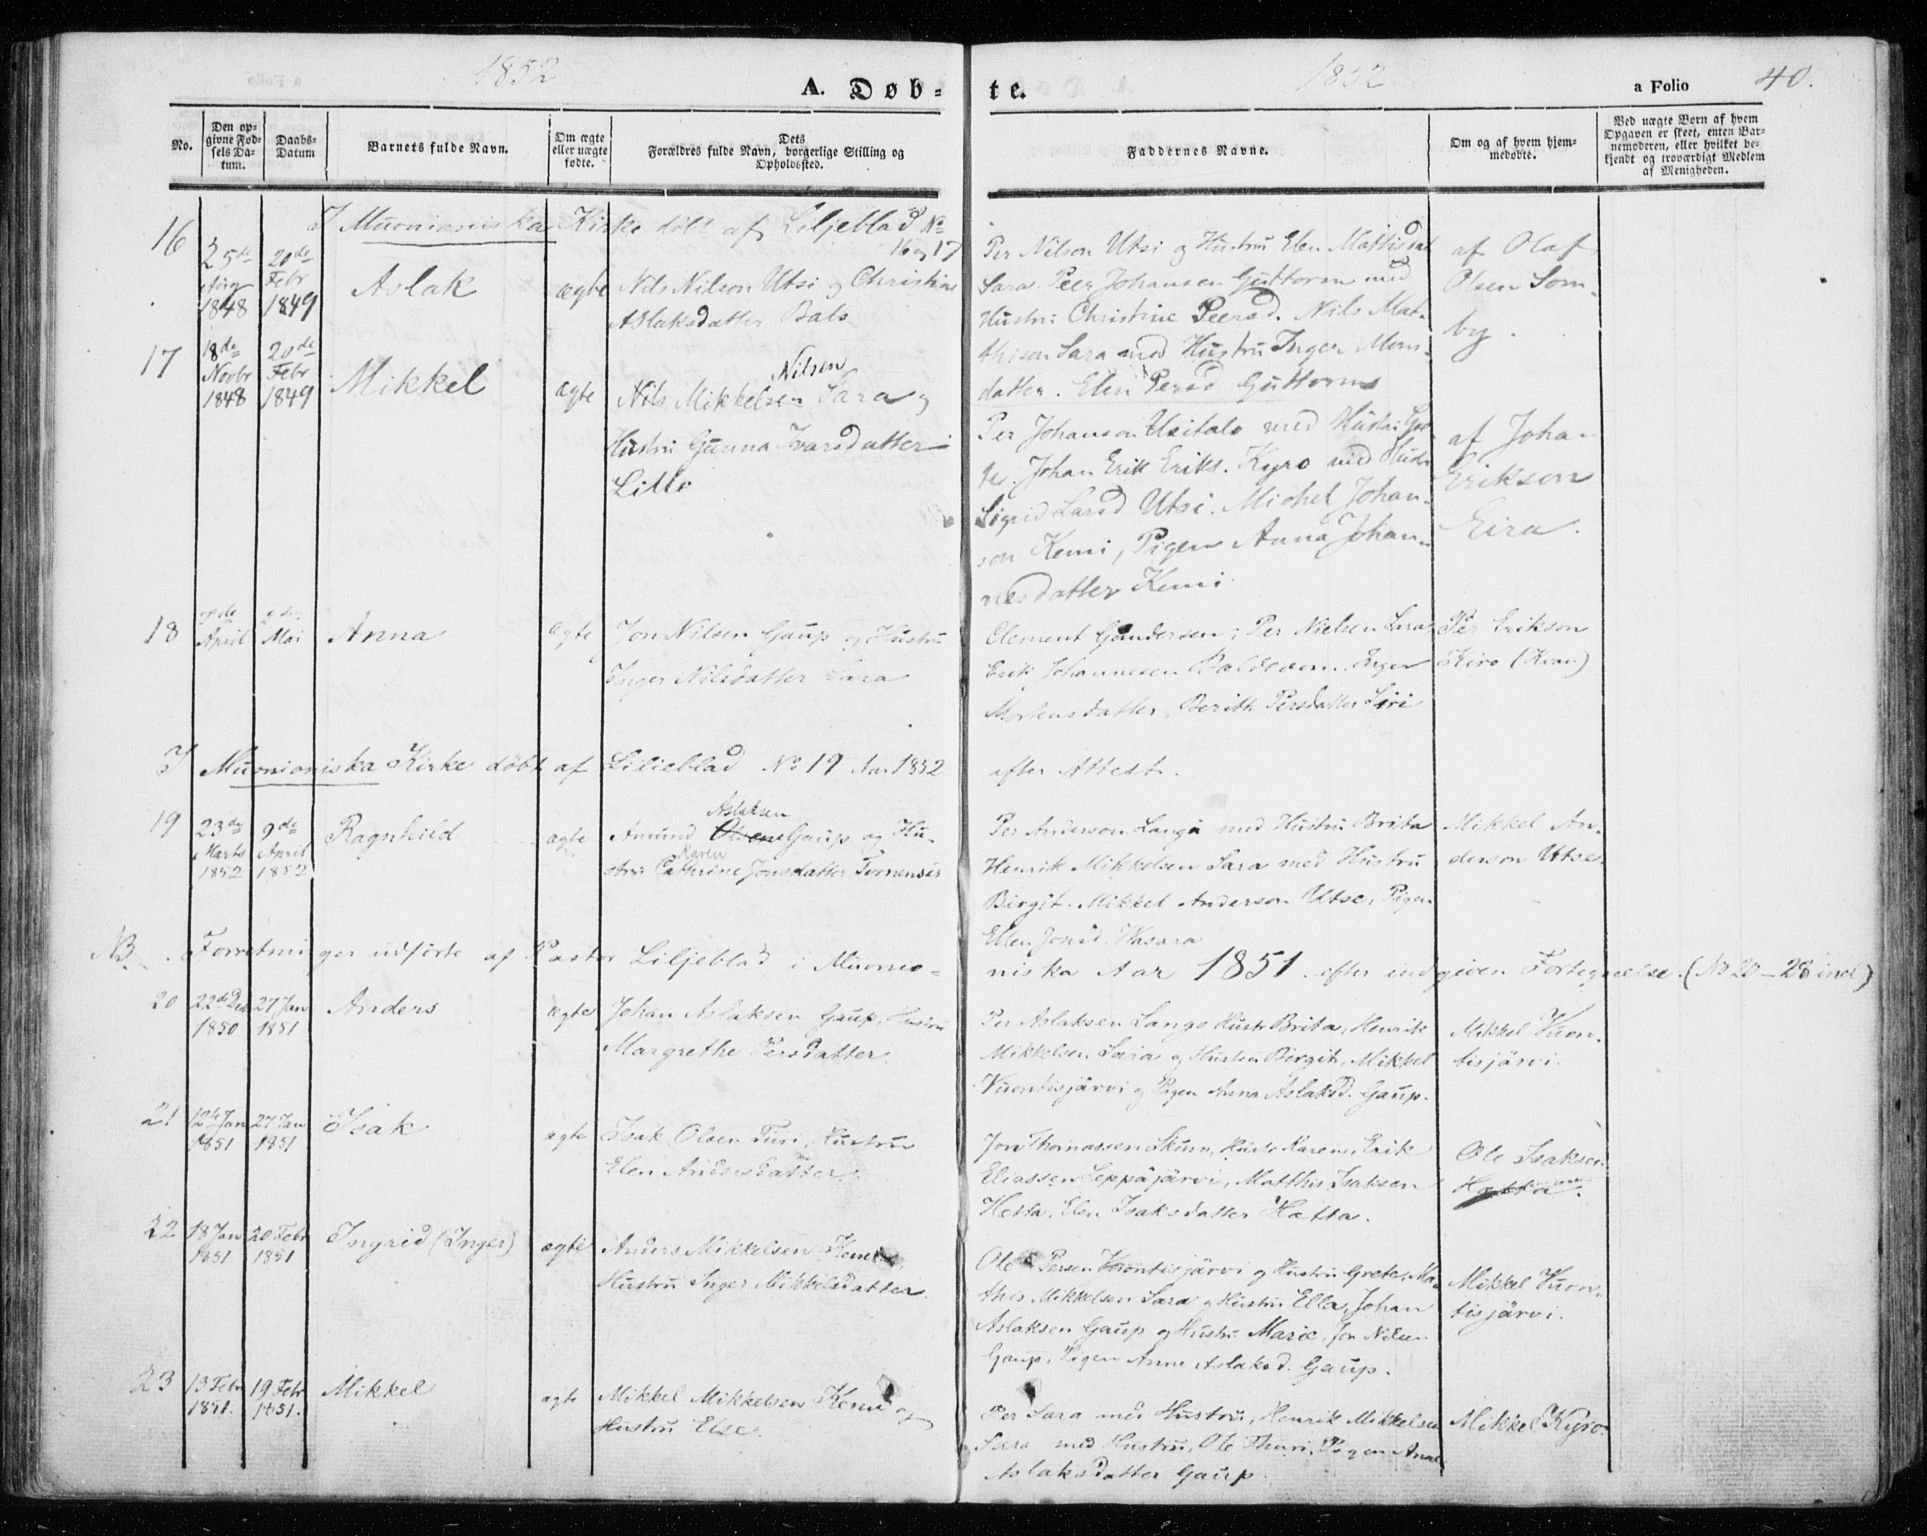 1852
A. Døb-
te.
1852
a Folio 40.
No.
Den op-
givne Fød-
sels Da-
tum.
Daabs-
Datum
Barnets fulde Navn.
Om ægte
eller uægte
fødte.
Dets
Forældres fulde Navn, borgerlige Stilling og
Opholdssted.
Faddernes Navne.
Om og af hvem hjem-
medøbte.
Ved uægte Børn af hvem
Opgaven er skeet, enten Bar-
nemoderen, eller hvilket be-
kjendt og troværdigt Medlem
af Menigheden.
I Muonioniska Kirke döbt af Liljeblad No
16 og 17
16
25de
1848
20de
Febr
1849
Aslak
ægte
Nils Nilson Utsi og Christine
Aslaksdatter Bals
Per Nilson Utsi og Hustru Elen Mattisdat
Sara. Peer Johansen Guttorm med
Hustru Christine Peersd. Nils Mat-
thison Sara med Hustru Inger Mons-
datter. Elen Persd Guttorm
af Olaf
Olsen Som-
by.
17
18de
Novbr
1848
20de
Febr
1849
Mikkel
ægte
Nilsen
Nils Mikkelsen Sara og
Hustru Gunna Ivarsdatter
Lillo
Per Johanson Usitalo med Hustru Gre-
te. Johan Erik Eriks. Kyro med Hustr
Sigrid Larsd Utsi. Michel Johan-
son Kemi, Pigen Anna Johan-
nesdatter Kemi
af Joha-
Erikson
Eira.
18
April
Mai
Anna
ægte
Jon Nilsen Gaup og Hustru
Inger Nilsdatter Sara
Clement Gundersen; Per Nielsen Sara,
Erik Johannesen Inger
Mortensdatter, Berith Persdatter Siri
Per Erikson
Kiro (Kvæn)
I Muonioniska Kirke döbt af Liljeblad No 19 Aar 1852
efter Attest.
19
23de
Marts
1852
9de
April
1852
Ragnhild
ægte
Aslaksen
Amund Olsen Gaup og Hu-
Karen
stru Cathrine Jonsdatter Tornensis
Per Anderson Lango med Hustru Brita
Henrik Mikkelsen Sara med Hustru
Birgit. Mikkel Anderson Utse, Pigen
Ellen Jonsd. Wasara
Mikkel An-
derson Utse
NB. Forretninger udförte af Pastor Liljeblad i Muonio-
niska Aar 1851. efter indgiven Fortegnelse. (No 20-28 incl)
20
22de Dec
1850
27 Jan
1851
Anders
ægte
Johan Aslaksen Gaup, Hustru
Margrethe Persdatter
Per Aslaksen Lango Hustr Brita, Henrik
Mikkelsen Sara og Hustru Birgit, Mikkel
Vuontisjärvi og Pigen Anna Aslaksd. Gaup.
Mikkel Vuon-
tisjärvi.
21
12te Jan
1851
27 Jan
1851
Isak
ægte
Isak Olsen Turi, Hustru
Elen Andersdatter.
Jon Thomassen Skum, Hustr Karen, Erik
Eliassen Leppäjärvi, Matthis Isaksen
Hetta, Elen Isaksdatter Hætta.
Ole Isaksen
Hætta.
22
18 Jan
1851
20 Febr
1851
Ingrid (Inger)
ægte
Anders Mikkelsen Kemi
Hustru Inger Mikkelsdatter.
Ole Persen Vuontisjärvi og Hustru Grete, Ma-
this Mikkelsen Sara og Hustru Ella, Johan
Aslaksen Gaup og Hustru Marie, Jon Nilsen
Gaup, Pigen Anne Aslaksd. Gaup.
Mikkel Vuon-
tisjärvi.
23
13 Febr
1851.
19 Febr
1851.
Mikkel
ægte
Mikkel Mikkelsen Kemi og
Hustru Else.
Per Sara med Hustru, Henrik Mikkelsen
Sara med Hustru, Ole Thuri, Pigen Anne
Aslaksdatter Gaup.
Mikkel Kyrö.